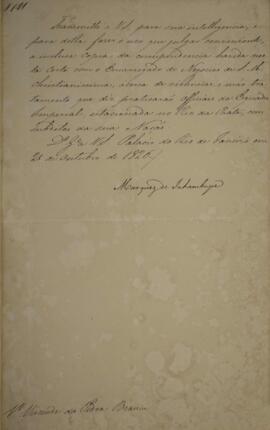 Transmitto a VS. para sua intelligencia, e
para della fazer o uso que julgar conveniente,
a inclusa copia da correspondencia havida nes-
ta Corte com o Encarregado de Negocios de S. M.
Christianissima, ácerca de violencias e máo tra-
tamento que diz praticarão officiaes da Esquadra
Imperial, estacionada no Rio da Prata, com
subditos da sua Nação
Ds. Gde. a VS. Palacio do Rio de Janeiro em
28 de Outubro de 1826
Marquez de Inhambupe
Sr. Visconde da Pedra Branca